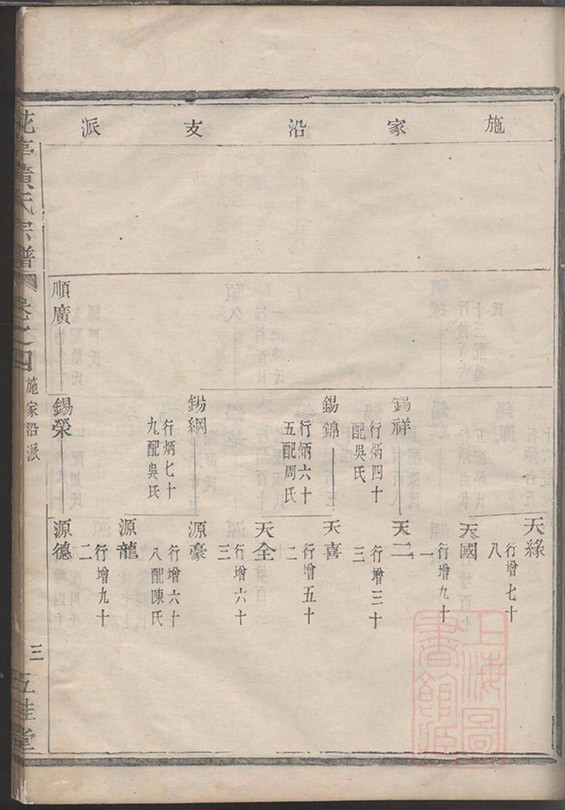 施家沿支派
天緣
行增七十
八
天國
行增九十
一
錫祥
行炳四十
配吳氏
天二
行增三十
三
錫錦
行炳六十
五配周氏
天喜
行增五十
二
天全
行增六十
三
錫綱
行炳七十
九配吳氏
源豪
行增六十
八配陳氏
源龍
行增九十
二
順廣
錫榮
源德
黃氏宗譜
卷之四
施家沿派
三
五桂堂
上海圖
書館藏